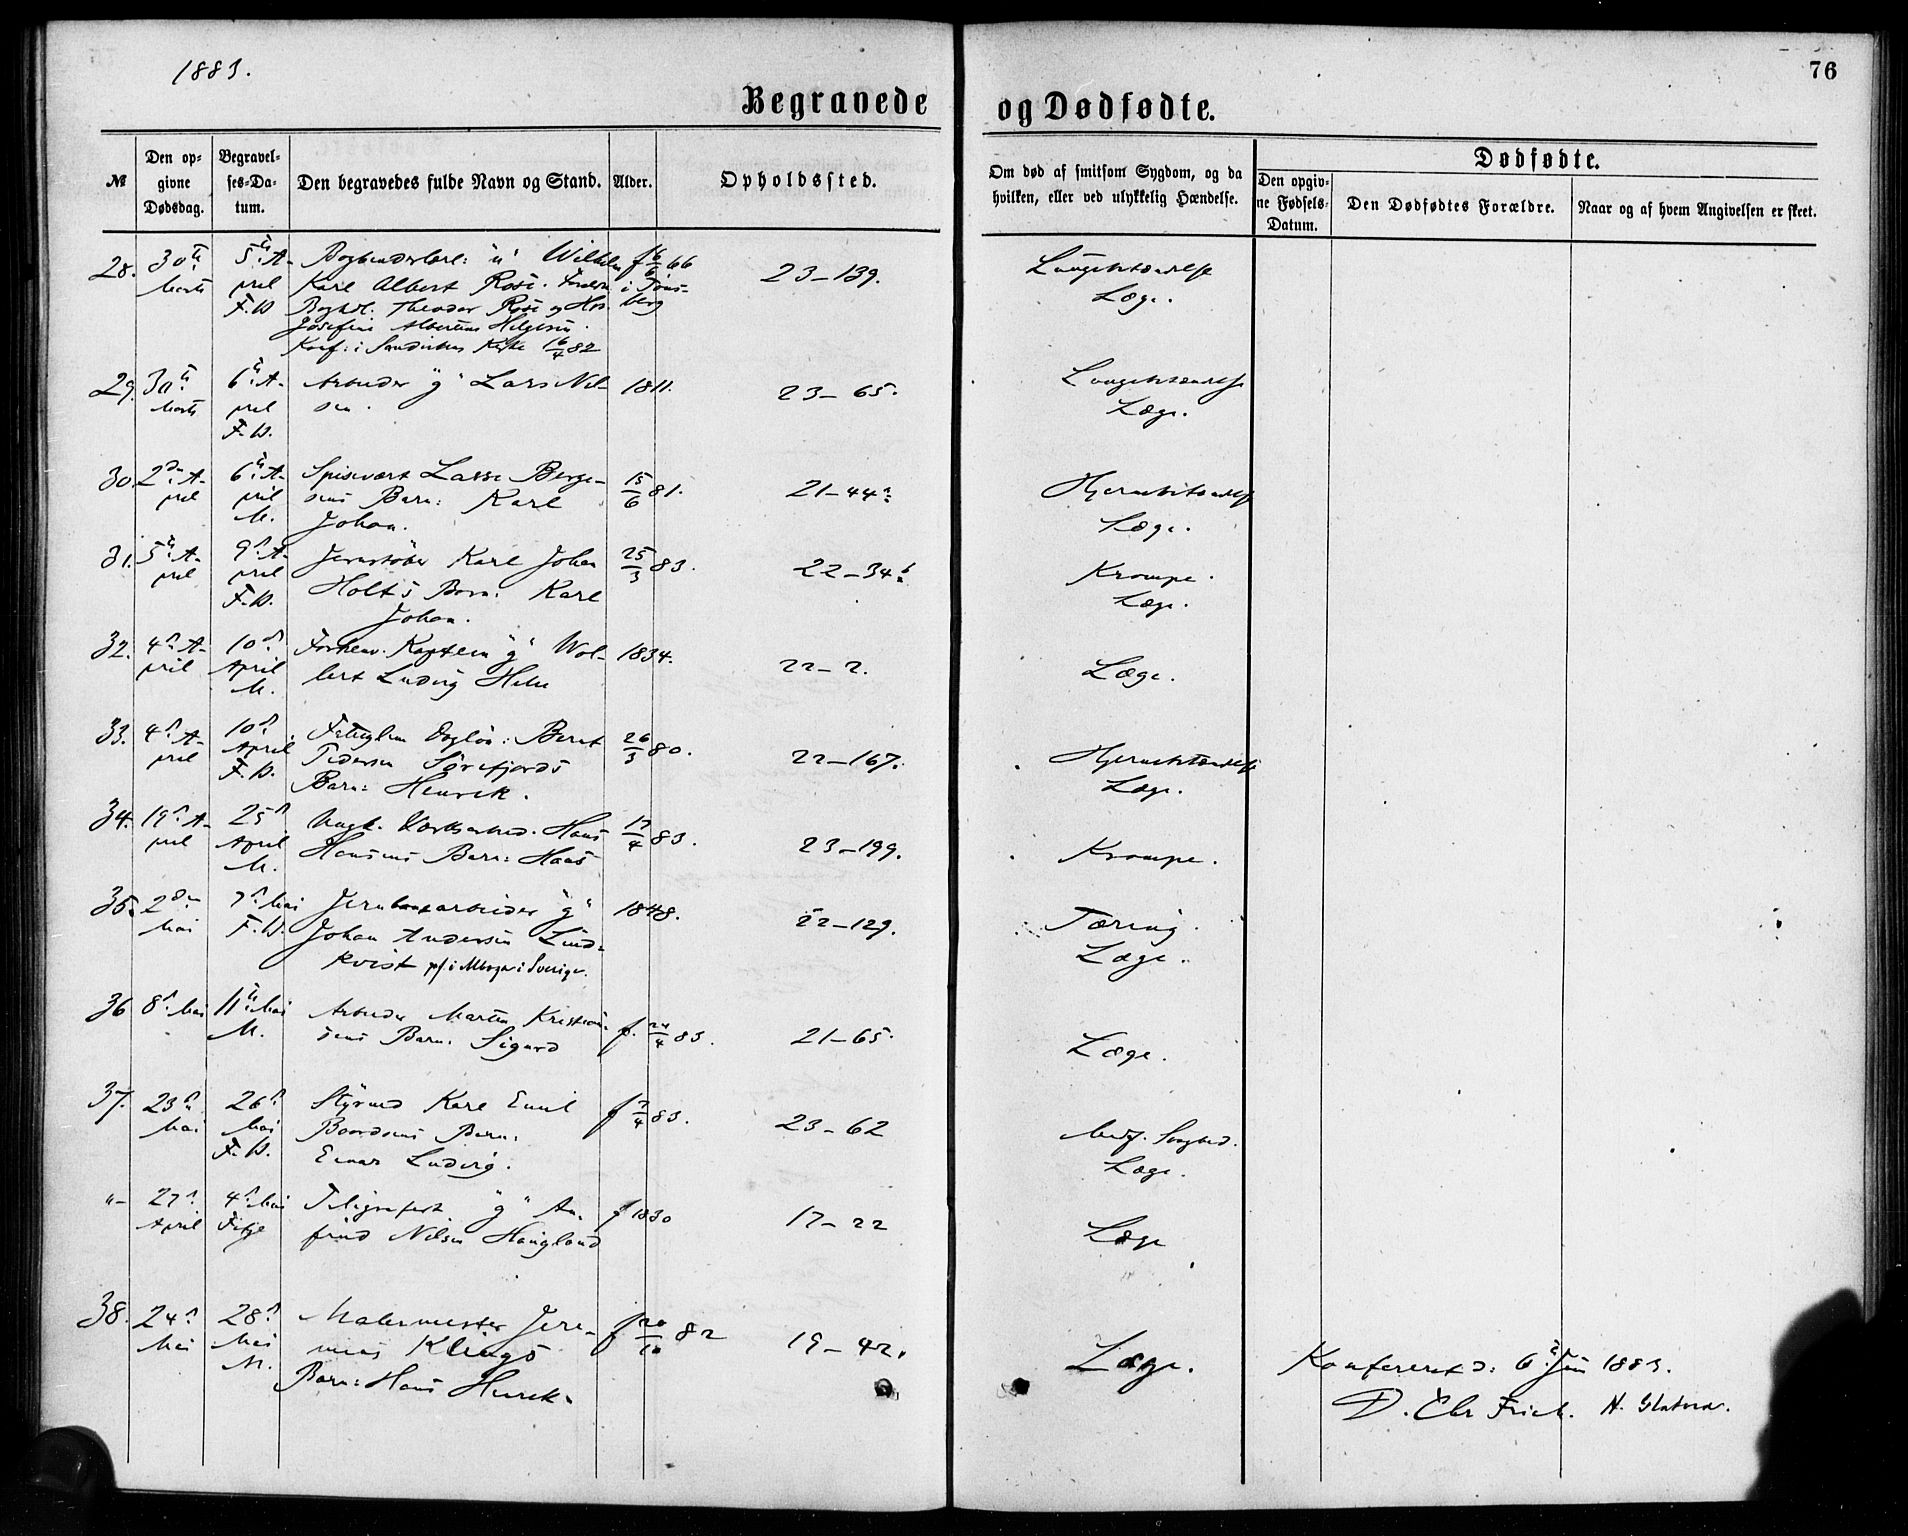 1883.
76
Begravede og Dødfødte.
№
Den opgivne Dødsdag.
Begravelses-Datum.
Den begravedes fulde Navn og Stand.
Alder.
Opholdssted.
Om død af smitsom Sygdom, og da hvilken, eller ved ulykkelig Hændelse.
Dødfødte.
Den opgivne Fødsels-Datum.
Den Dødfødtes Forældre.
Naar og af hvem Angivelsen er skeet.
28. 30te Marts 5te April F. H. Wilhelm
Karl Albert Rose.
Theodor Rose og
Josefine Helgesen.
Konf: i Sandvikens Kirke 16/4 82
f 6/6 66 i Tønsberg
23–139.
Lungebetændelse
Læge.
29. 30te Marts 6te April F. H. Arbeider "g" Lars Nilsen.
1811.
23–65.
Lungebetændelse
Læge.
30. 2den April 6te April M. Spisevert Lasse Bergesens Barn: Karl
Johan.
15/6 81.
21–44
Hjernebetændelse
Læge.
31. 5te April 9de April F. H. Jernstøber Karl Johan
Holts Barn: Karl
Johan.
25/3 83.
22–34
Krampe.
Læge.
32. 4de April 10de April M. Forhenv. Kaptein "g" Wollert Ludvig
1834.
22–2.
Læge.
33. 4de April 10de April F. H. Beret
Pedersen Sørefjords
Barn: Henrik.
26/3 80.
22–167.
Hjernebetændelse
Læge.
34. 19de April 25de April M. Hans
Hansens Barn: Hans
17/4 83.
23–199.
Krampe.
35. 2den Mai 7de Mai F. H. Jernbanearbeider "g"
Johan Andersen Lindkvist i Sverige.
1848.
22–129.
Tæring.
Læge.
36 8de Mai 11te Mai M. Arbeider Martin Kristiansens Barn: Sigurd
f. 24/4 83.
21–65.
Læge.
37. 23de Mai 26de Mai F. H. Styrmd Karl Emil
Baardsens Barn:
Einar Ludvig.
f 7/4 83.
23–62
Læge.
"– 27de April 4de Mai Fitje Telegrafist "g" Anfind Nilsen Haugland
f 1830
17–22
Læge
38. 24de Mai 28de Mai M. Malermester Jeremias Klings
Barn: Hans Henrik.
f 20/10 82
19–42.
Læge.
Konfereret d: 6te Juni 1883.
D. Chr Frich.